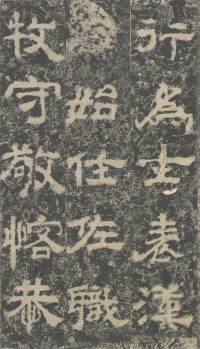 行為士表漢
始仕佐職
牧守敬恪恭